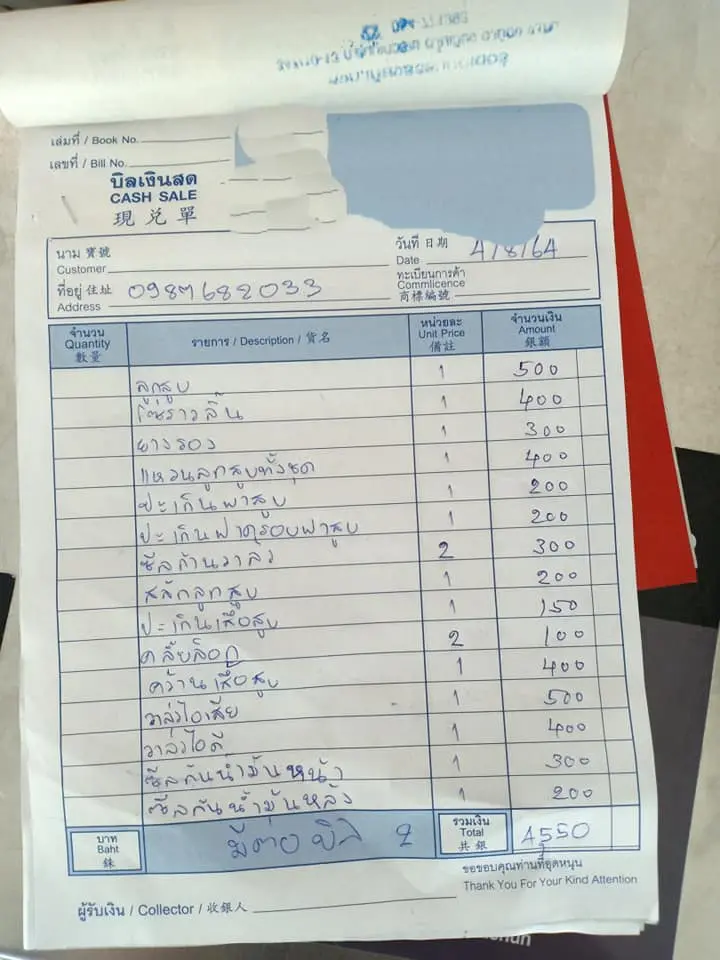 เล่มที่ / Book No.
เลขที่ / Bill No.
บิลเงินสด
CASH SALE
現兌單
นาม 寶號
Customer
วันที่ 日期
Date
4/8/64
ที่อยู่ 住址
Address
0987682033
ทะเบียนการค้า
Commlicence
商標編號
จำนวน
Quantity
數量
รายการ / Description / 貨名
หน่วยละ
Unit Price
備註
จำนวนเงิน
Amount
銀額
ลูกสูบ 1 500
โซ่ราวลิ้น 1 400
ยางรอง 1 300
แหวนลูกสูบทั้งชุด 1 400
ปะเก็นฝาสูบ 1 200
ปะเก็นฝาครอบฝาสูบ 1 200
ซีลก้านวาลว 2 300
สลักลูกสูบ 1 200
ปะเก็นเสื้อสูบ 1 150
คลิ้บล็อก 2 100
คว้านเสื้อสูบ 1 400
วาล่วไอเสีย 1 500
วาล่วไอดี 1 400
ซีลกันน้ำมันหน้า 1 300
ซีลกันน้ำมันหลัง 1 200
บาท
Baht
銖
มีต่อบิล 2
รวมเงิน
Total
共銀
4550
ขอขอบคุณท่านที่อุดหนุน
Thank You For Your Kind Attention
ผู้รับเงิน / Collector / 收銀人